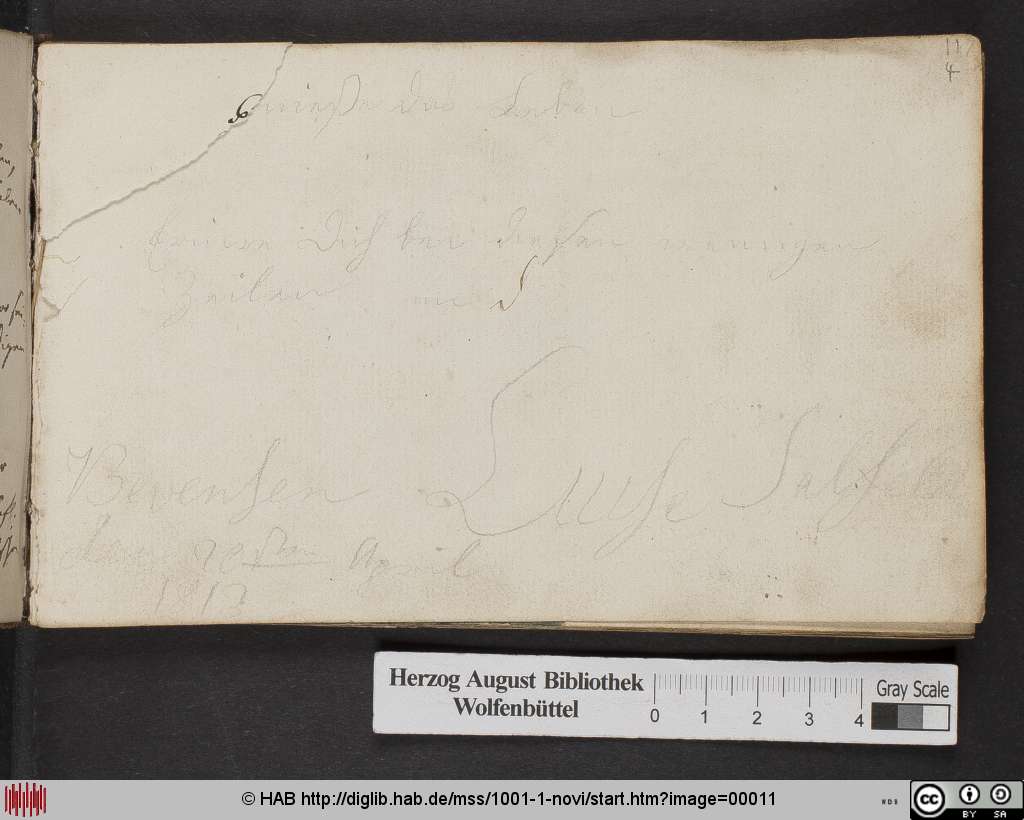 11
4
Genieße das Leben
Erinre Dich bei diesen wenigen
Zeilen an
Bevensen Luise Salfeld
den 22sten April
Herzog August Bibliothek
Wolfenbüttel
0 1 2 3 4
Gray Scale
© HAB http://diglib.hab.de/mss/1001-1-novi/start.htm?image=00011
cc BY SA